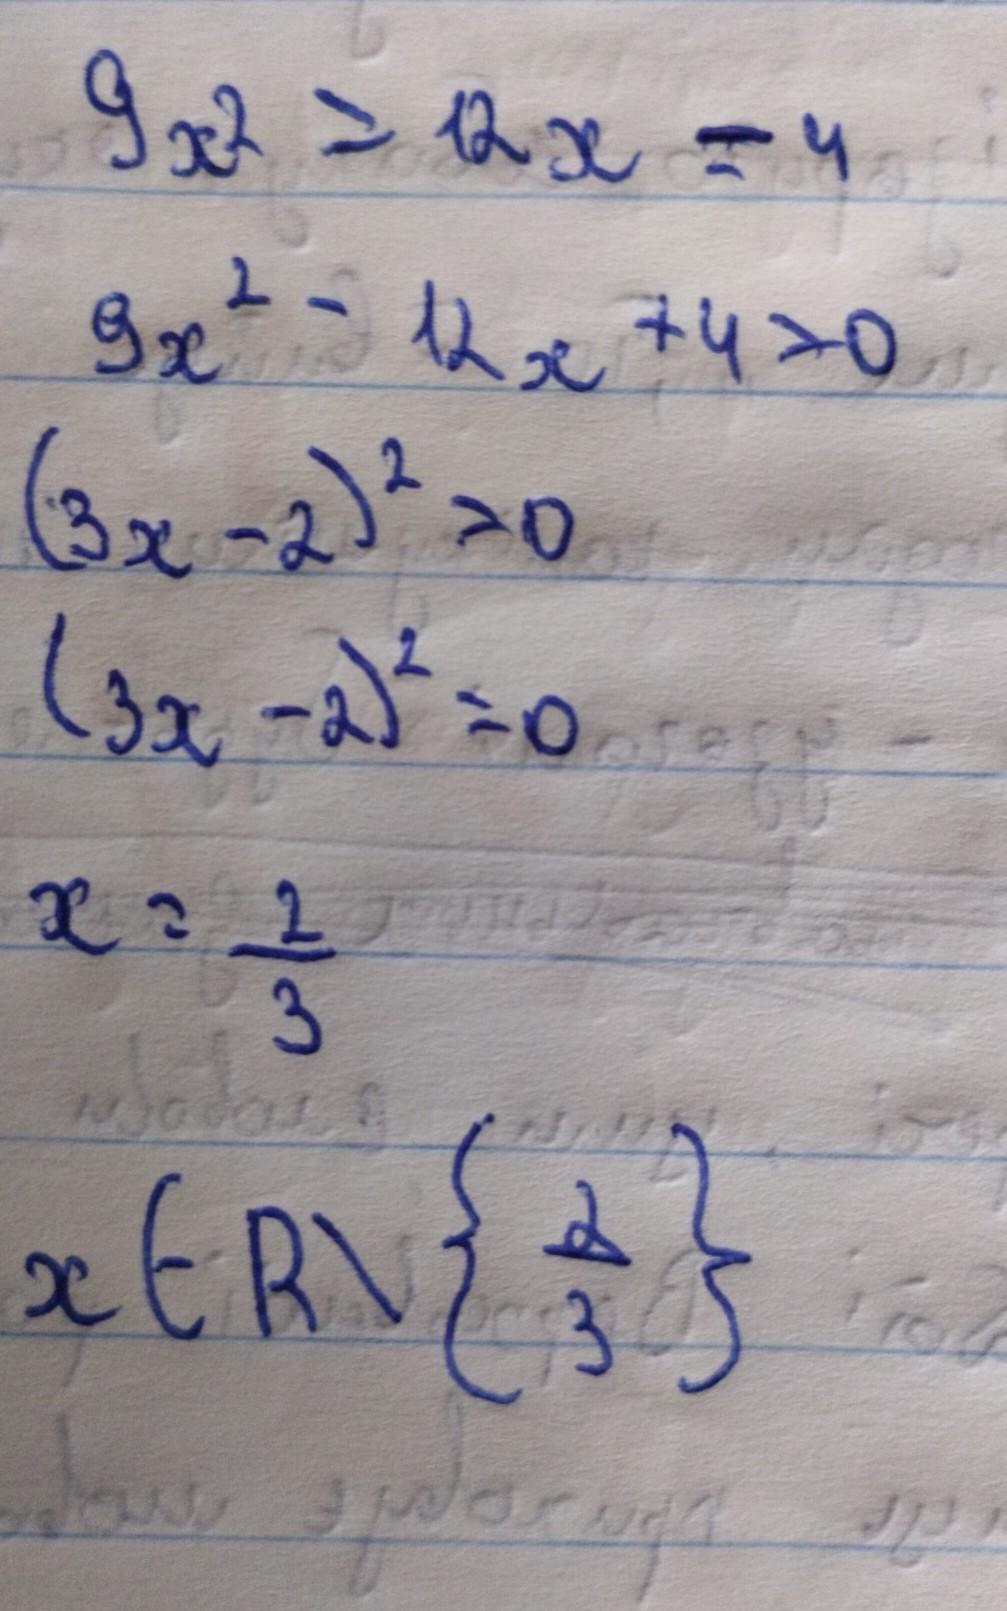 9x² > 12x - 4
9x² - 12x + 4 > 0
(3x - 2)² > 0
(3x - 2)² = 0
x = 2/3
x ∈ R \ {2/3}